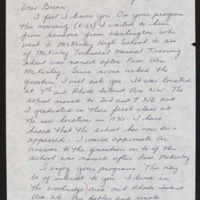 Dear Brian,
I feel I know you. On your program
this morning (8-22) I wanted to hear
from someone from Washington who
went to McKinley High School to see
if McKinley Technical Manual Training
School was named after Pres. Wm
McKinley. Since some asked the
question, I must ask you. It was located
at 7th and Rhode Island Ave NW. The
school moved to 2nd and T NE and
I graduated in their first class at
the new location in 1930. I have
heard that the school has now dis-
appeared. I would appreciate an
answer to the question as to if this
school was named after Pres. McKinley
I enjoy your programs. This may
be of interest to you. I lived in
the Woodridge area and Rhode Island
Ave NE. My father and